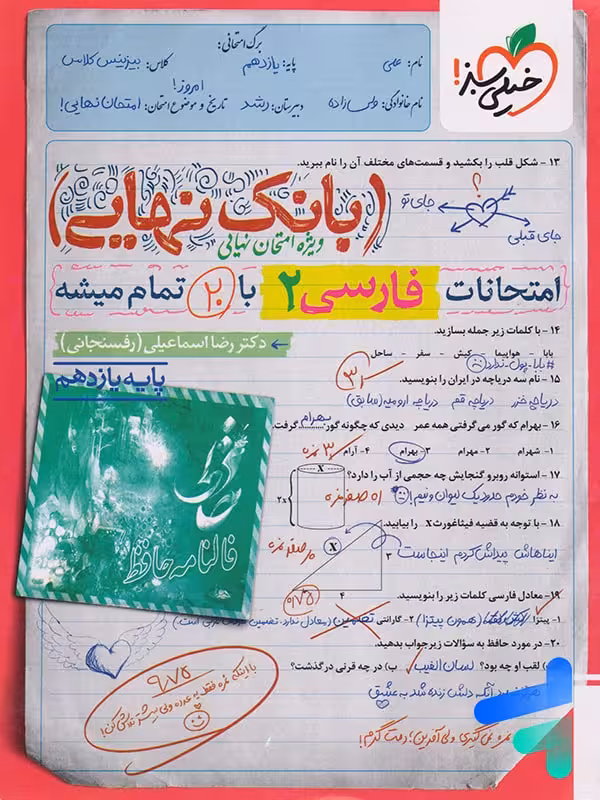 برگ امتحانی:
خیلی سبز!
نام: علی پایه: یازدهم کلاس: بیزینس کلاس
نام خانوادگی: ولی زاده دبیرستان: رشد تاریخ و موضوع امتحان: امروز! امتحان نهایی!
۱۳ - شکل قلب را بکشید و قسمت‌های مختلف آن را نام ببرید.
؟
جای تو
جای قبلی
(بانک نهایی)
ویژه امتحان نهایی
امتحانات فارسی ۲ با ۲۰ تمام میشه
۱۴ - با کلمات زیر جمله بسازید.
دکتر رضا اسماعیلی (رفسنجانی)
بابا - هواپیما - کیش - سفر - ساحل
#بابا_پول_ندارد
پایه یازدهم
۱۵ - نام سه دریاچه در ایران را بنویسید.
دریاچه خزر دریاچه قم دریاچه ارومیه (سابق)
۱۶ - بهرام که گور می‌گرفتی همه عمر دیدی که چگونه گور بهرام گرفت.
۱- شهرام ۲- مهرام ۳- بهرام ۴- آرام
۱۷ - استوانه روبرو گنجایش چه حجمی از آب را دارد؟
X
2X
به نظر خودم حدود یک لیوان و نیم!
۱۸ - با توجه به قضیه فیثاغورث X را بیابید.
ایناهاش پیداش کردم اینجاست
X
۳
۴
فالنامه حافظ
۱۹ - معادل فارسی کلمات زیر را بنویسید.
۰/۷۵
۱- پیتزا (همون پیتزا) ۲- گارانتی تضمین
۲۰- در مورد حافظ به سؤالات زیر جواب بدهید.
لقب او چه بود؟ لسان الغیب ب) در چه قرنی درگذشت؟
هرگز نمیرد آنکه دلش زنده شد به عشق
۹/۷۵
با اینکه نمره فقط یه عدده ولی بیشتر تلاش کن!
نمره نمی‌گیری ولی آفرین، دمت گرم!